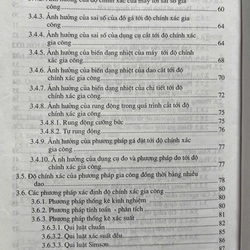 công ........ 60
3.4.3. Ảnh hưởng của sai số đồ gá tới độ chính xác gia
công ........ 64
3.4.4. Ảnh hưởng của sai số của dụng cụ cắt tới độ chính xác
gia công ........ 64
3.4.5. Ảnh hưởng của biến dạng nhiệt của máy tới độ chính
xác gia công ........ 68
3.4.6. Ảnh hưởng của biến dạng nhiệt của dao cắt tới độ chính
xác gia công ........ 70
3.4.7. Ảnh hưởng của biến dạng nhiệt của chi tiết tới độ chính
xác gia công ........ 72
3.4.8. Ảnh hưởng của rung động trong quá trình cắt tới độ chính
xác gia công ........ 75
3.4.8.1. Rung động cưỡng bức ........ 75
3.4.8.2. Tự rung động ........ 76
3.4.9. Ảnh hưởng của phương pháp gá đặt tới độ chính xác gia
công ........ 77
3.4.10. Ảnh hưởng của dụng cụ đo và phương pháp đo tới độ
chính xác gia công ........ 77
3.5. Độ chính xác của phương pháp gia công đồng thời bằng nhiều
dao ........ 78
3.6. Các phương pháp xác định độ chính xác gia công ........ 80
3.6.1. Phương pháp thống kê kinh nghiệm ........ 80
3.6.2. Phương pháp tính toán - phân tích
3.6.3. Phương pháp thống kê xác suất
3.6.3.1. Qui luật chuẩn
3.6.3.2. Qui luật xác suất đều
3.6.3.3. Qui luật Simson